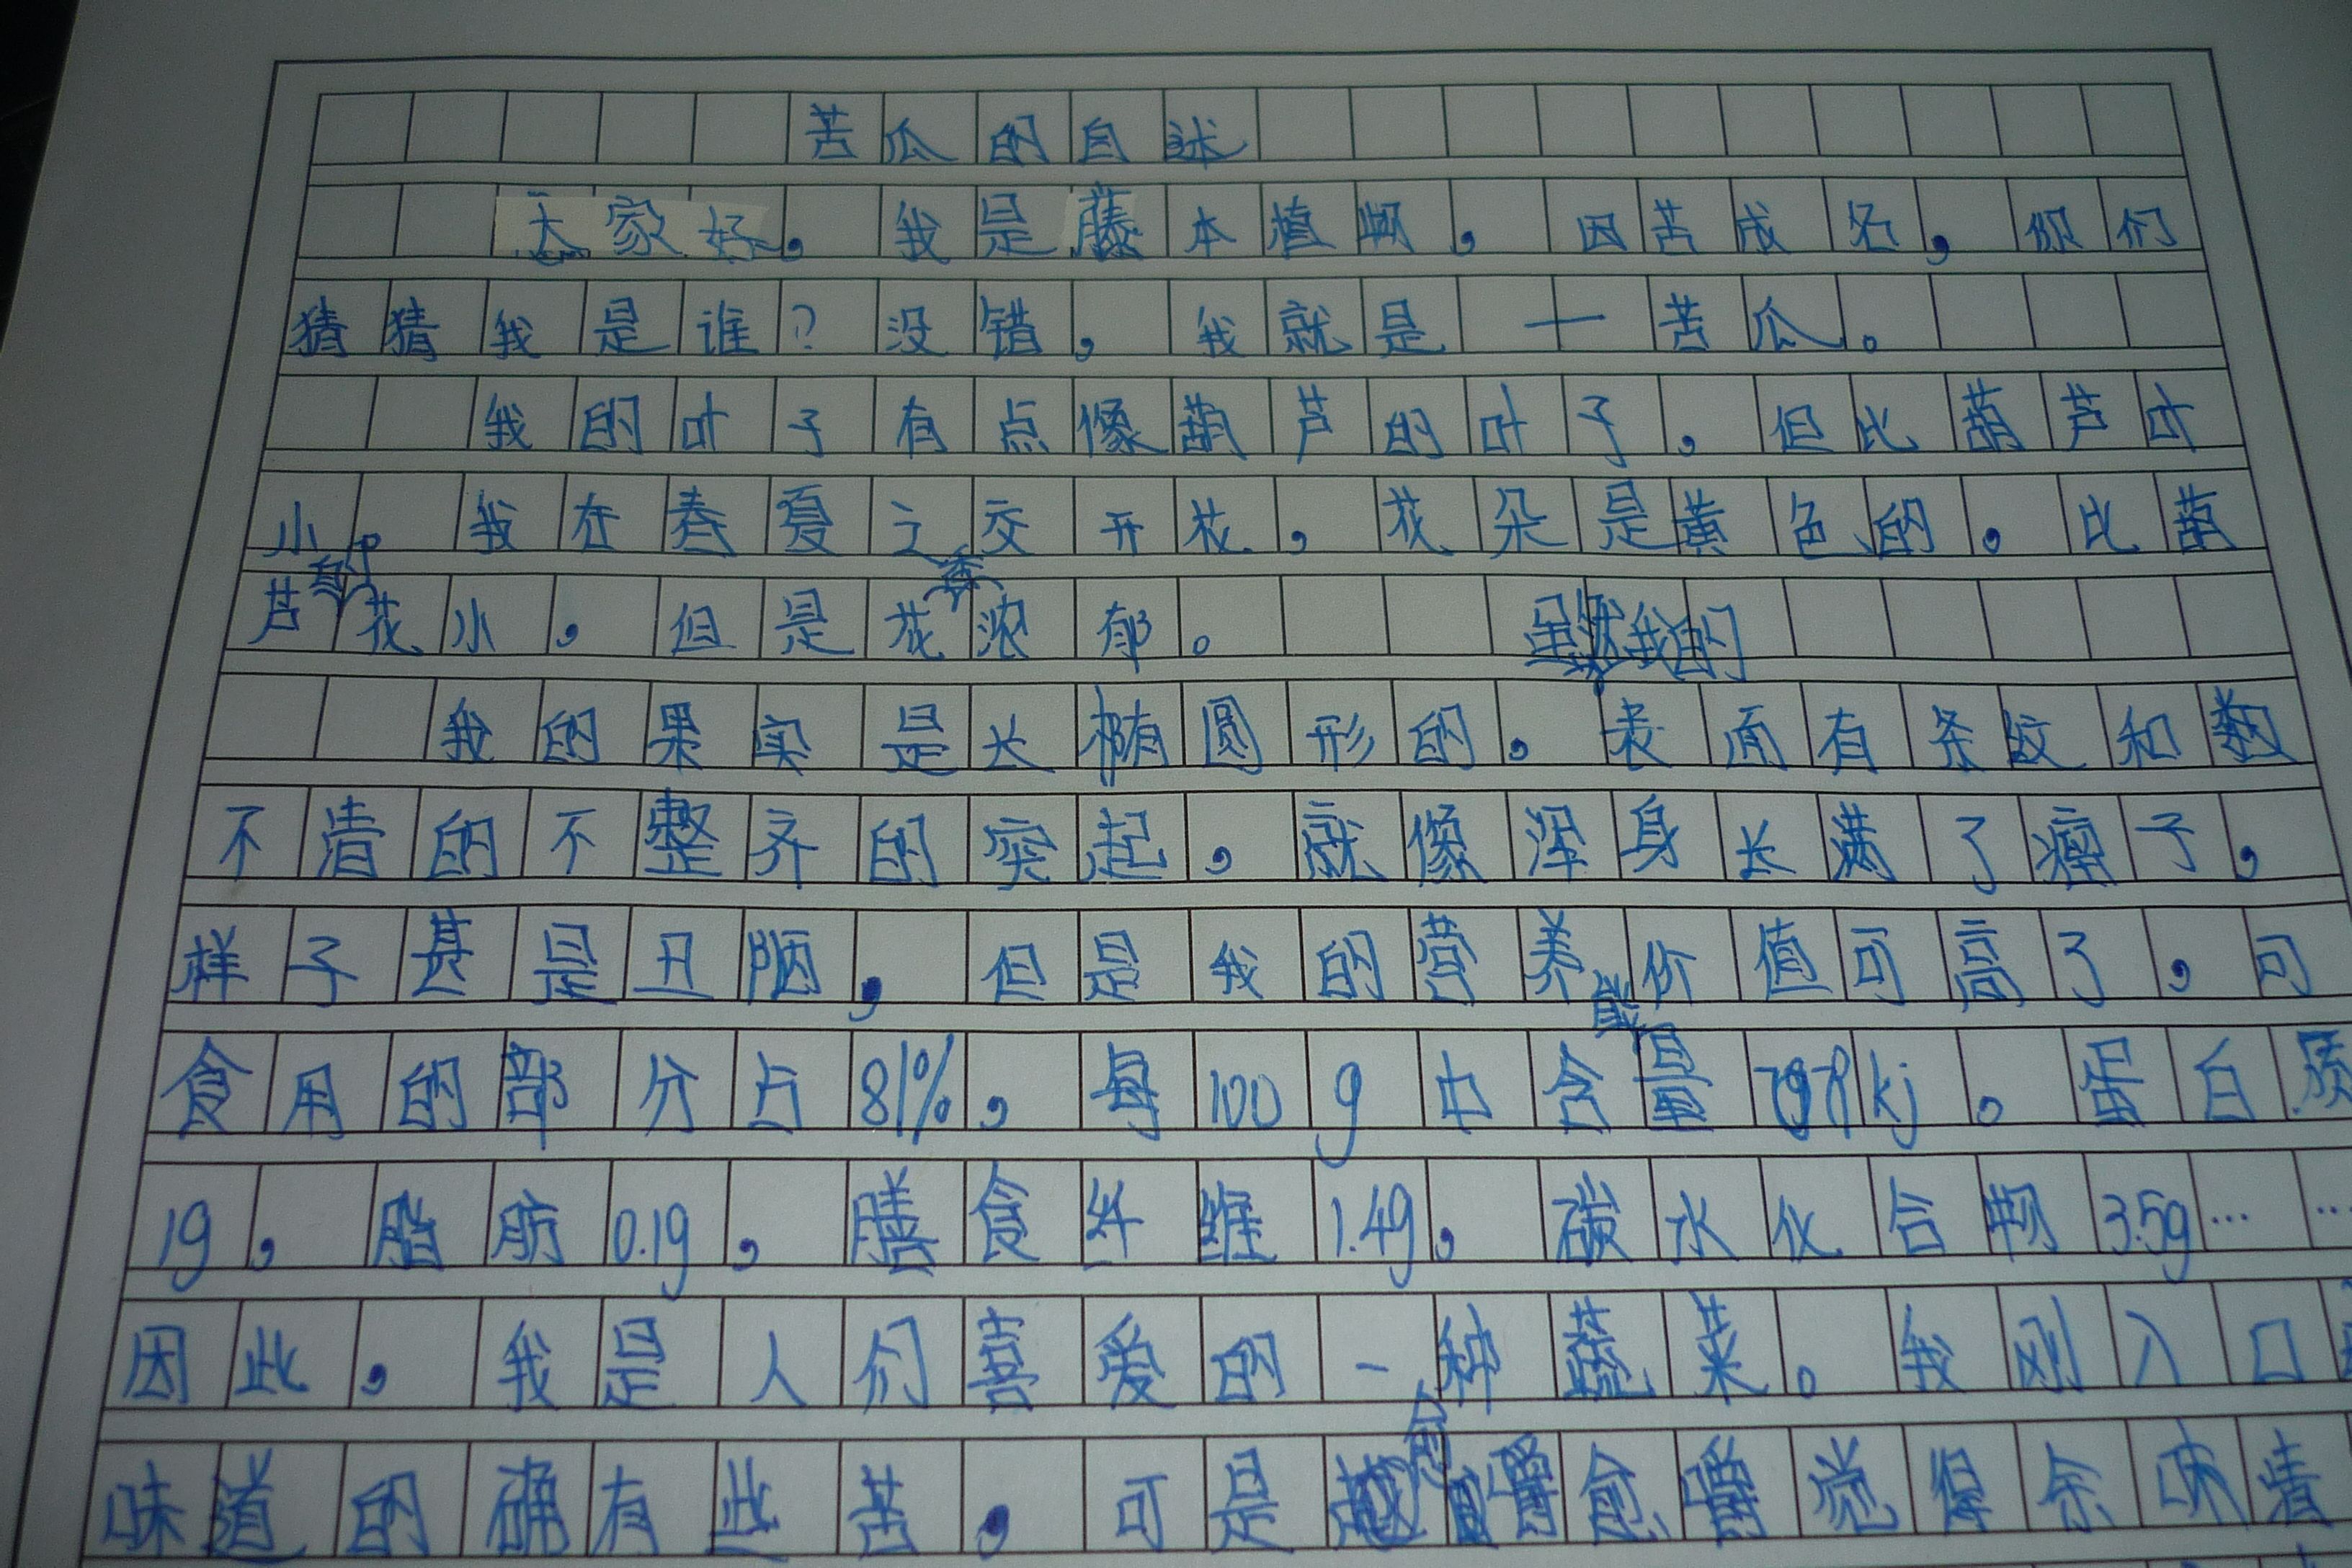 苦瓜的自述
大家好。我是藤本植物，因苦成名，你们
猜猜我是谁？没错，我就是一苦瓜。
我的叶子有点像葫芦的叶子，但比葫芦叶
小。我在春夏之交开花，花朵是黄色的。比葫
芦的花小，但是花香浓郁。
我的果实是长椭圆形的。表面有条纹和数
不清的不整齐的突起，就像浑身长满了瘤子，
样子甚是丑陋，但是我的营养价值可高了，可
食用的部分占81%，每100g中含能量kj。蛋白质
1g，脂肪0.1g，膳食纤维1.4g，碳水化合物3.5g……
因此，我是人们喜爱的一种蔬菜。我刚入口
味道的确有些苦，可是愈嚼愈嚼觉得余味清